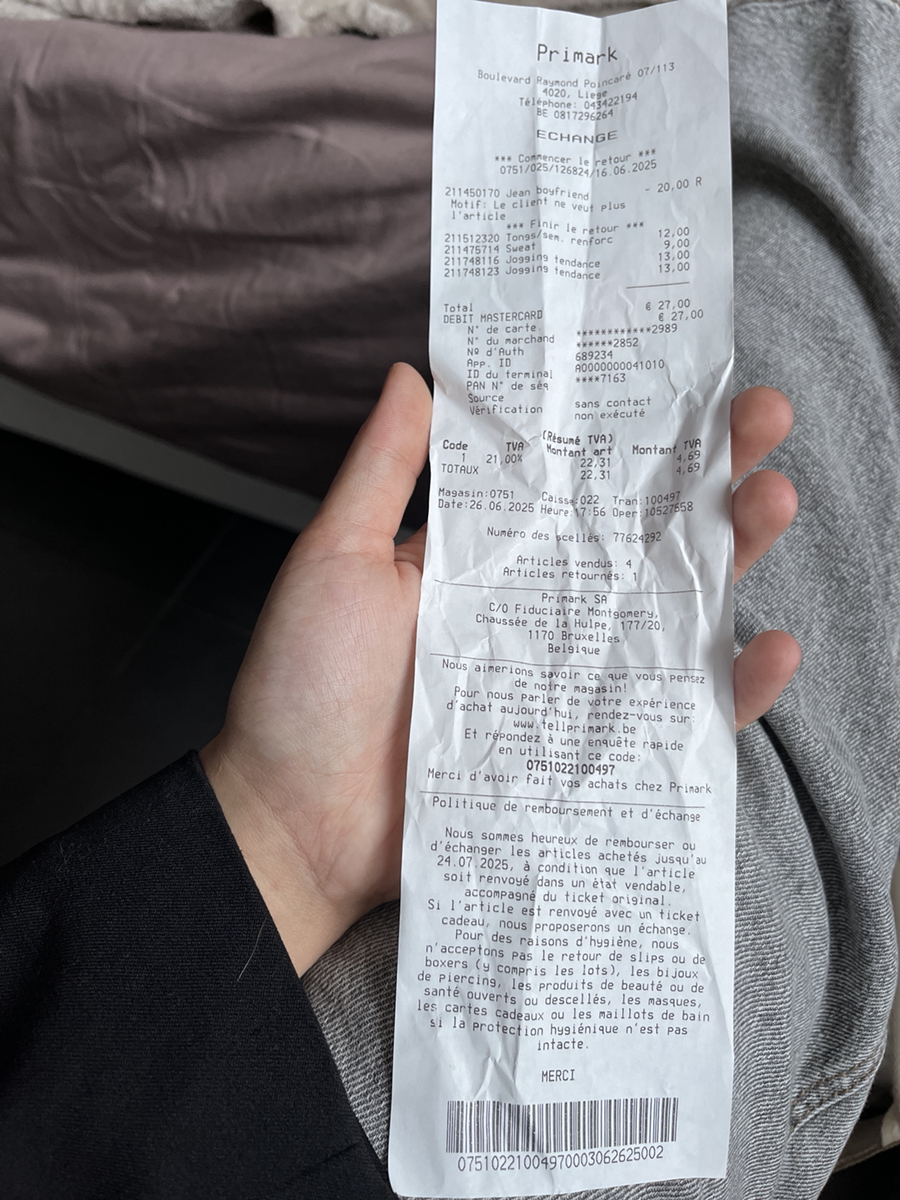 Primark
Boulevard Raymond Poincaré 07/113
4020, Liege
Téléphone: 043422194
BE 0817296264
ECHANGE
*** Commencer le retour ***
0751/025/126824/16.06.2025
211450170 Jean boyfriend - 20,00 R
Motif: Le client ne veut plus
l'article
*** Finir le retour ***
211512320 Tongs/sem. renforc 12,00
211475714 Sweat 9,00
211748116 Jogging tendance 13,00
211748123 Jogging tendance 13,00
Total € 27,00
DEBIT MASTERCARD € 27,00
N° de carte ************2989
N° du marchand ******2852
Nº d'Auth 689234
App. ID A0000000041010
ID du terminal ****7163
PAN N° de séq
Source sans contact
Vérification non exécuté
(Résumé TVA)
Code TVA Montant art Montant TVA
1 21,00% 22,31 4,69
TOTAUX 22,31 4,69
Magasin:0751 Caisse:022 Tran:100497
Date:26.06.2025 Heure:17:56 Oper:10527658
Numéro des scellés: 77624292
Articles vendus: 4
Articles retournés: 1
Primark SA
C/O Fiduciaire Montgomery,
Chaussée de la Hulpe, 177/20,
1170 Bruxelles
Belgique
Nous aimerions savoir ce que vous pensez
de notre magasin!
Pour nous parler de votre expérience
d'achat aujourd'hui, rendez-vous sur:
www.tellprimark.be
Et répondez à une enquête rapide
en utilisant ce code:
0751022100497
Merci d'avoir fait vos achats chez Primark
Politique de remboursement et d'échange
Nous sommes heureux de rembourser ou
d'échanger les articles achetés jusqu'au
24.07.2025, à condition que l'article
soit renvoyé dans un état vendable,
accompagné du ticket original.
Si l'article est renvoyé avec un ticket
cadeau, nous proposerons un échange.
Pour des raisons d'hygiène, nous
n'acceptons pas le retour de slips ou de
boxers (y compris les lots), les bijoux
de piercing, les produits de beauté ou de
santé ouverts ou descellés, les masques,
les cartes cadeaux ou les maillots de bain
si la protection hygiénique n'est pas
intacte.
MERCI
07510221004970003062625002